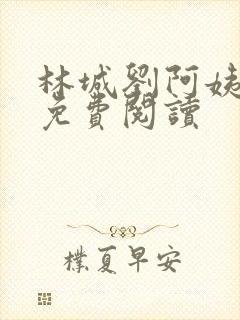 林城劉阿姨
免費閱讀
樸夏早安